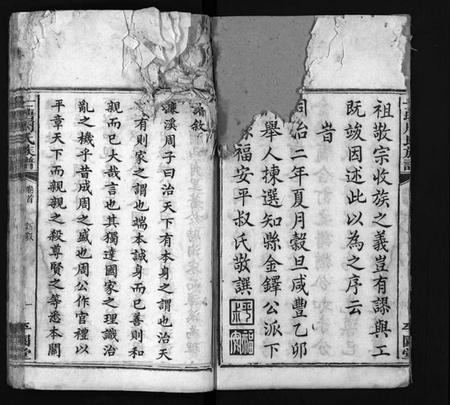 祖敬宗收族之義豈有謬與工
既竣因述此以為之序云
旹
同治二年夏月穀旦咸豐乙卯
舉人揀選知縣金鐸公派下
福安平叔氏敬撰
譜敘
濂溪周子曰治天下有本身之謂也治天
有則家之謂也端本誠身而已善則和
親而已大哉言也其獨達國家之理識治
亂之機乎昔成周之盛也周公作官禮以
平章天下而親親之殺尊賢之等悉本關
卷首
一